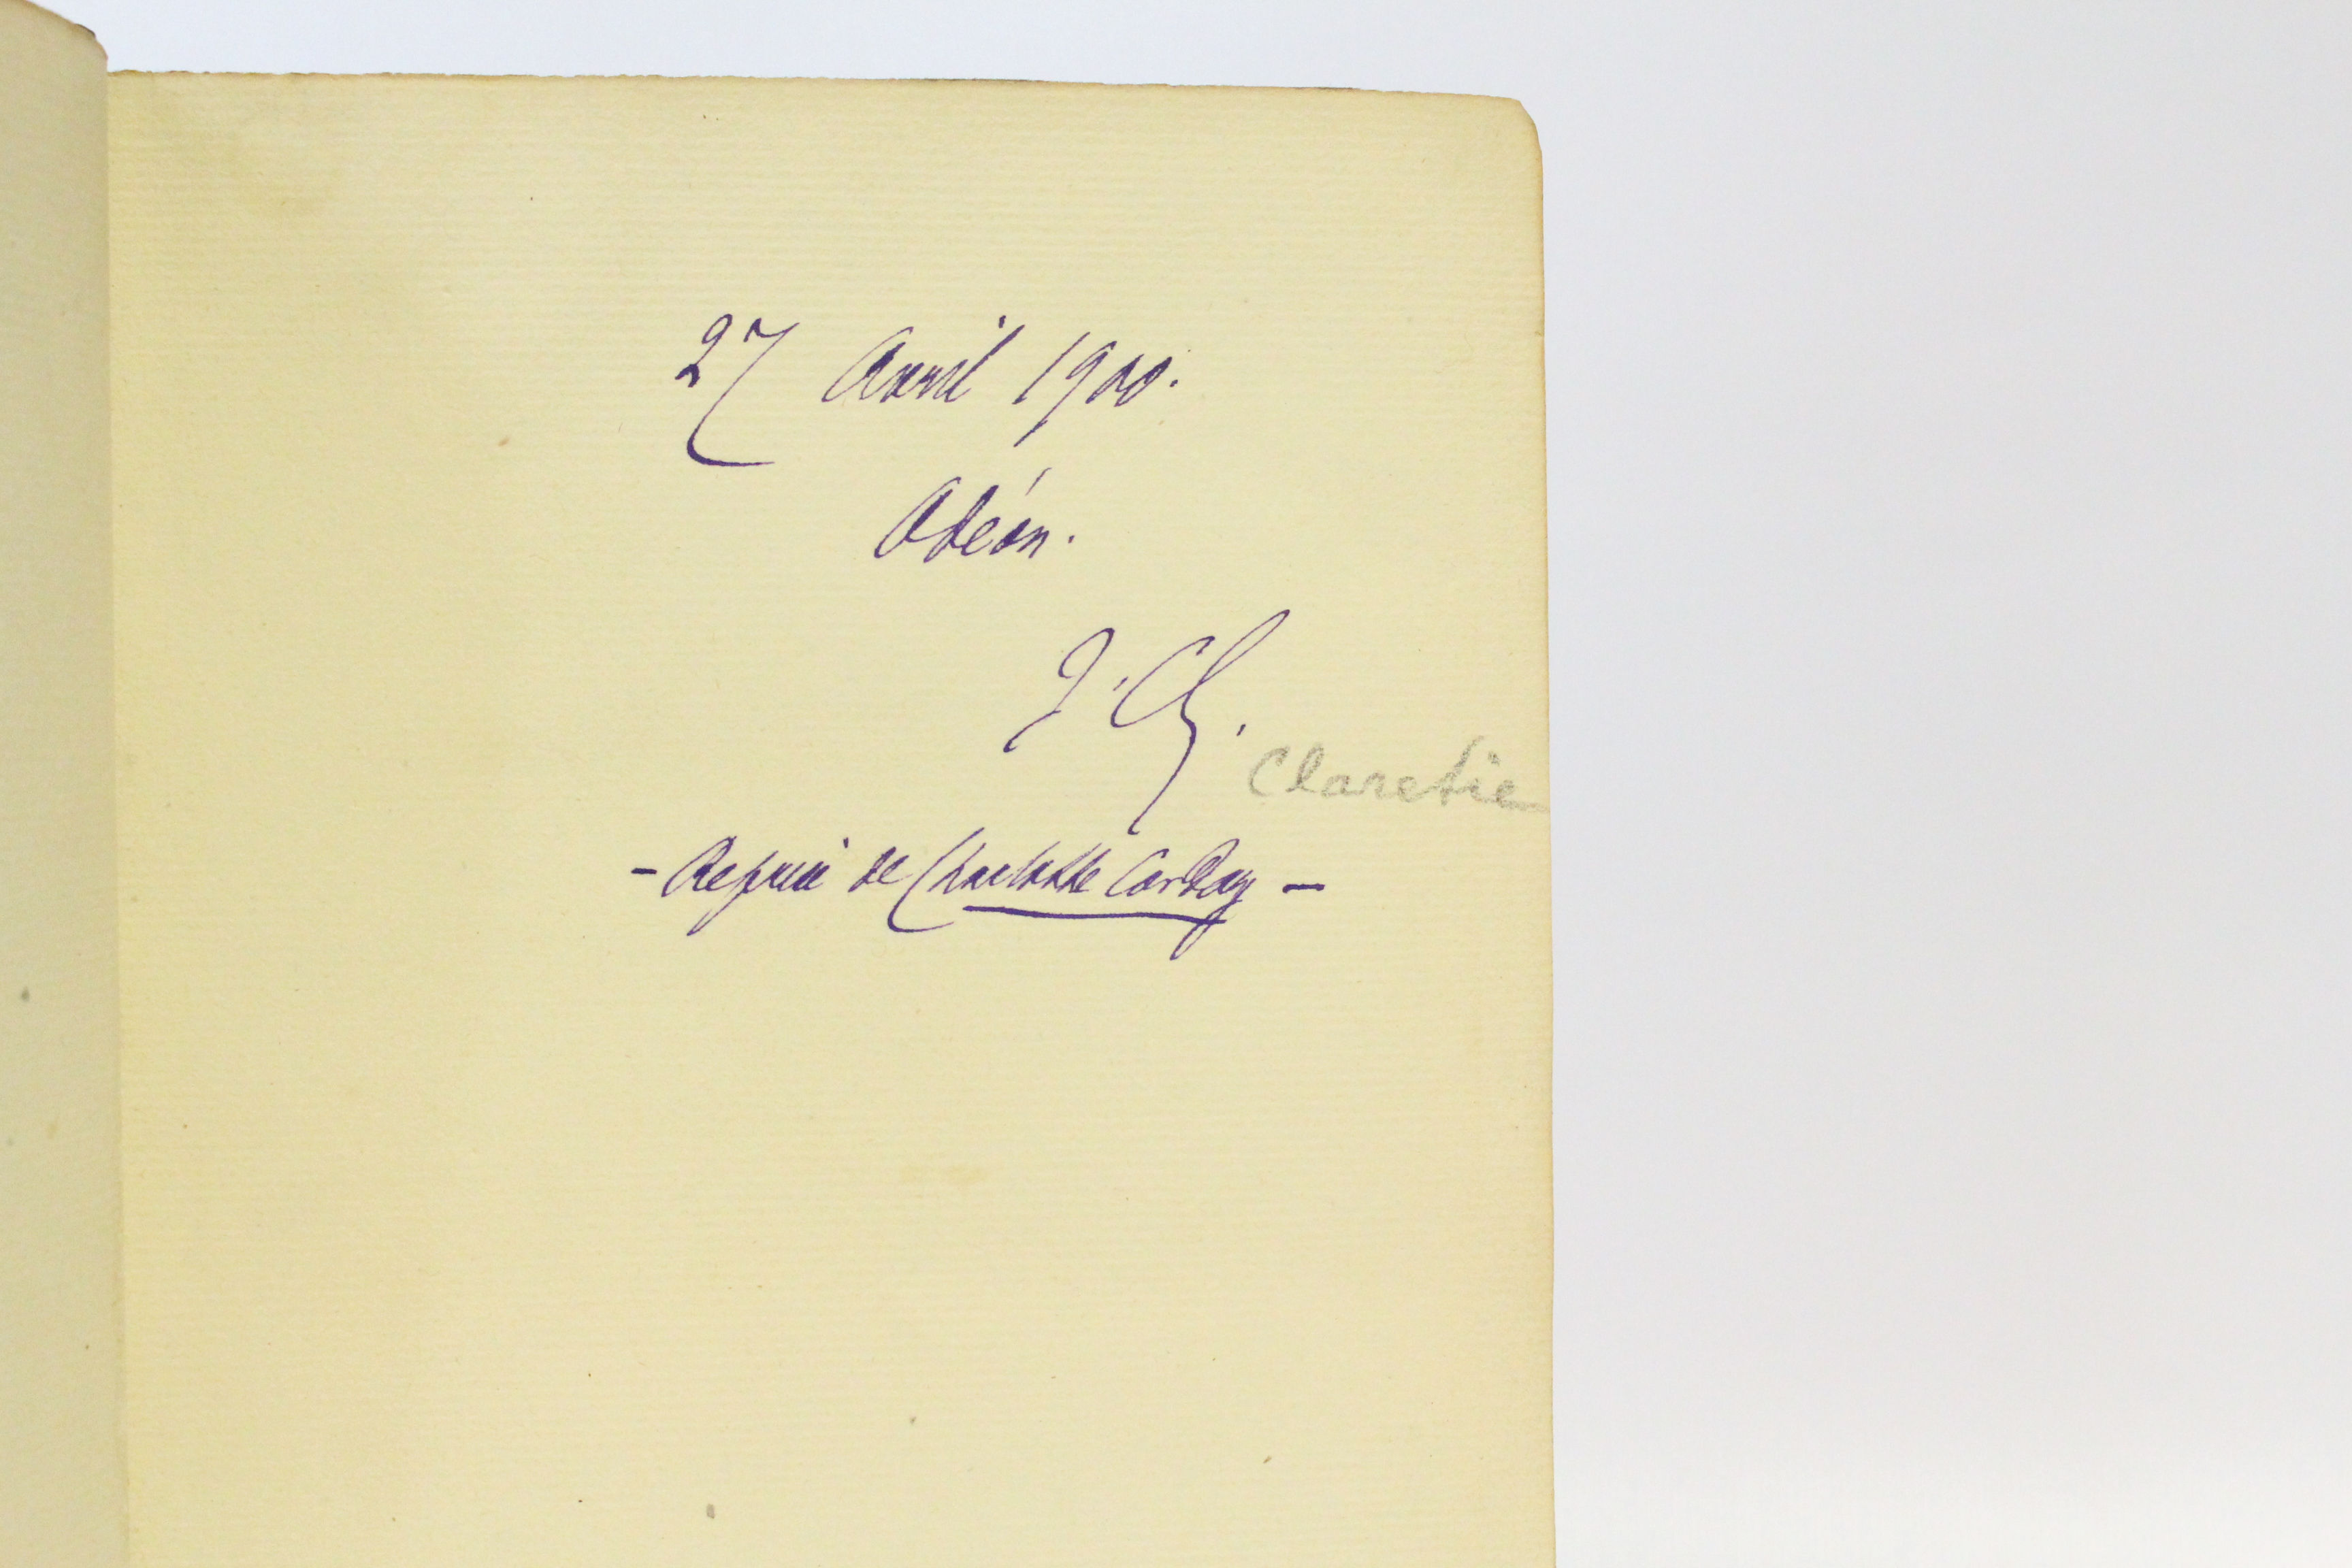 27 Avril 1900.
Odéon.
J. Cl.
Claretie
- Reprise de Charlotte Corday -